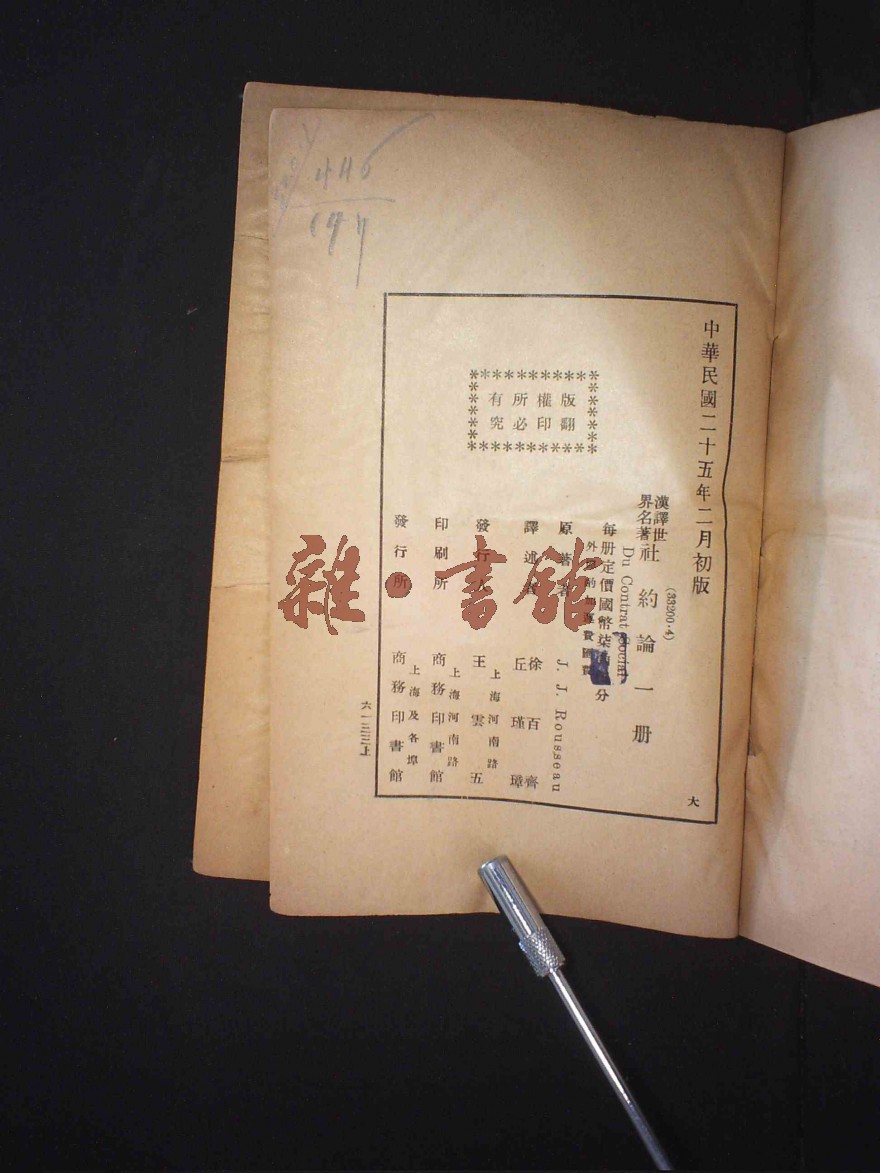 中華民國二十五年二月初版
(33200·4)
漢譯世界名著 社約論 一册
Du Contrat Social
每册定價國幣柒 分
外埠酌加運費匯費
原著者 J. J. Rousseau
譯述者 徐百齊 丘瑾璋
發行人 上海河南路 王雲五
印刷所 上海河南路 商務印書館
發行所 上海及各埠 商務印書館
版權所有
翻印必究
大
六一三三上
446
雜·書館